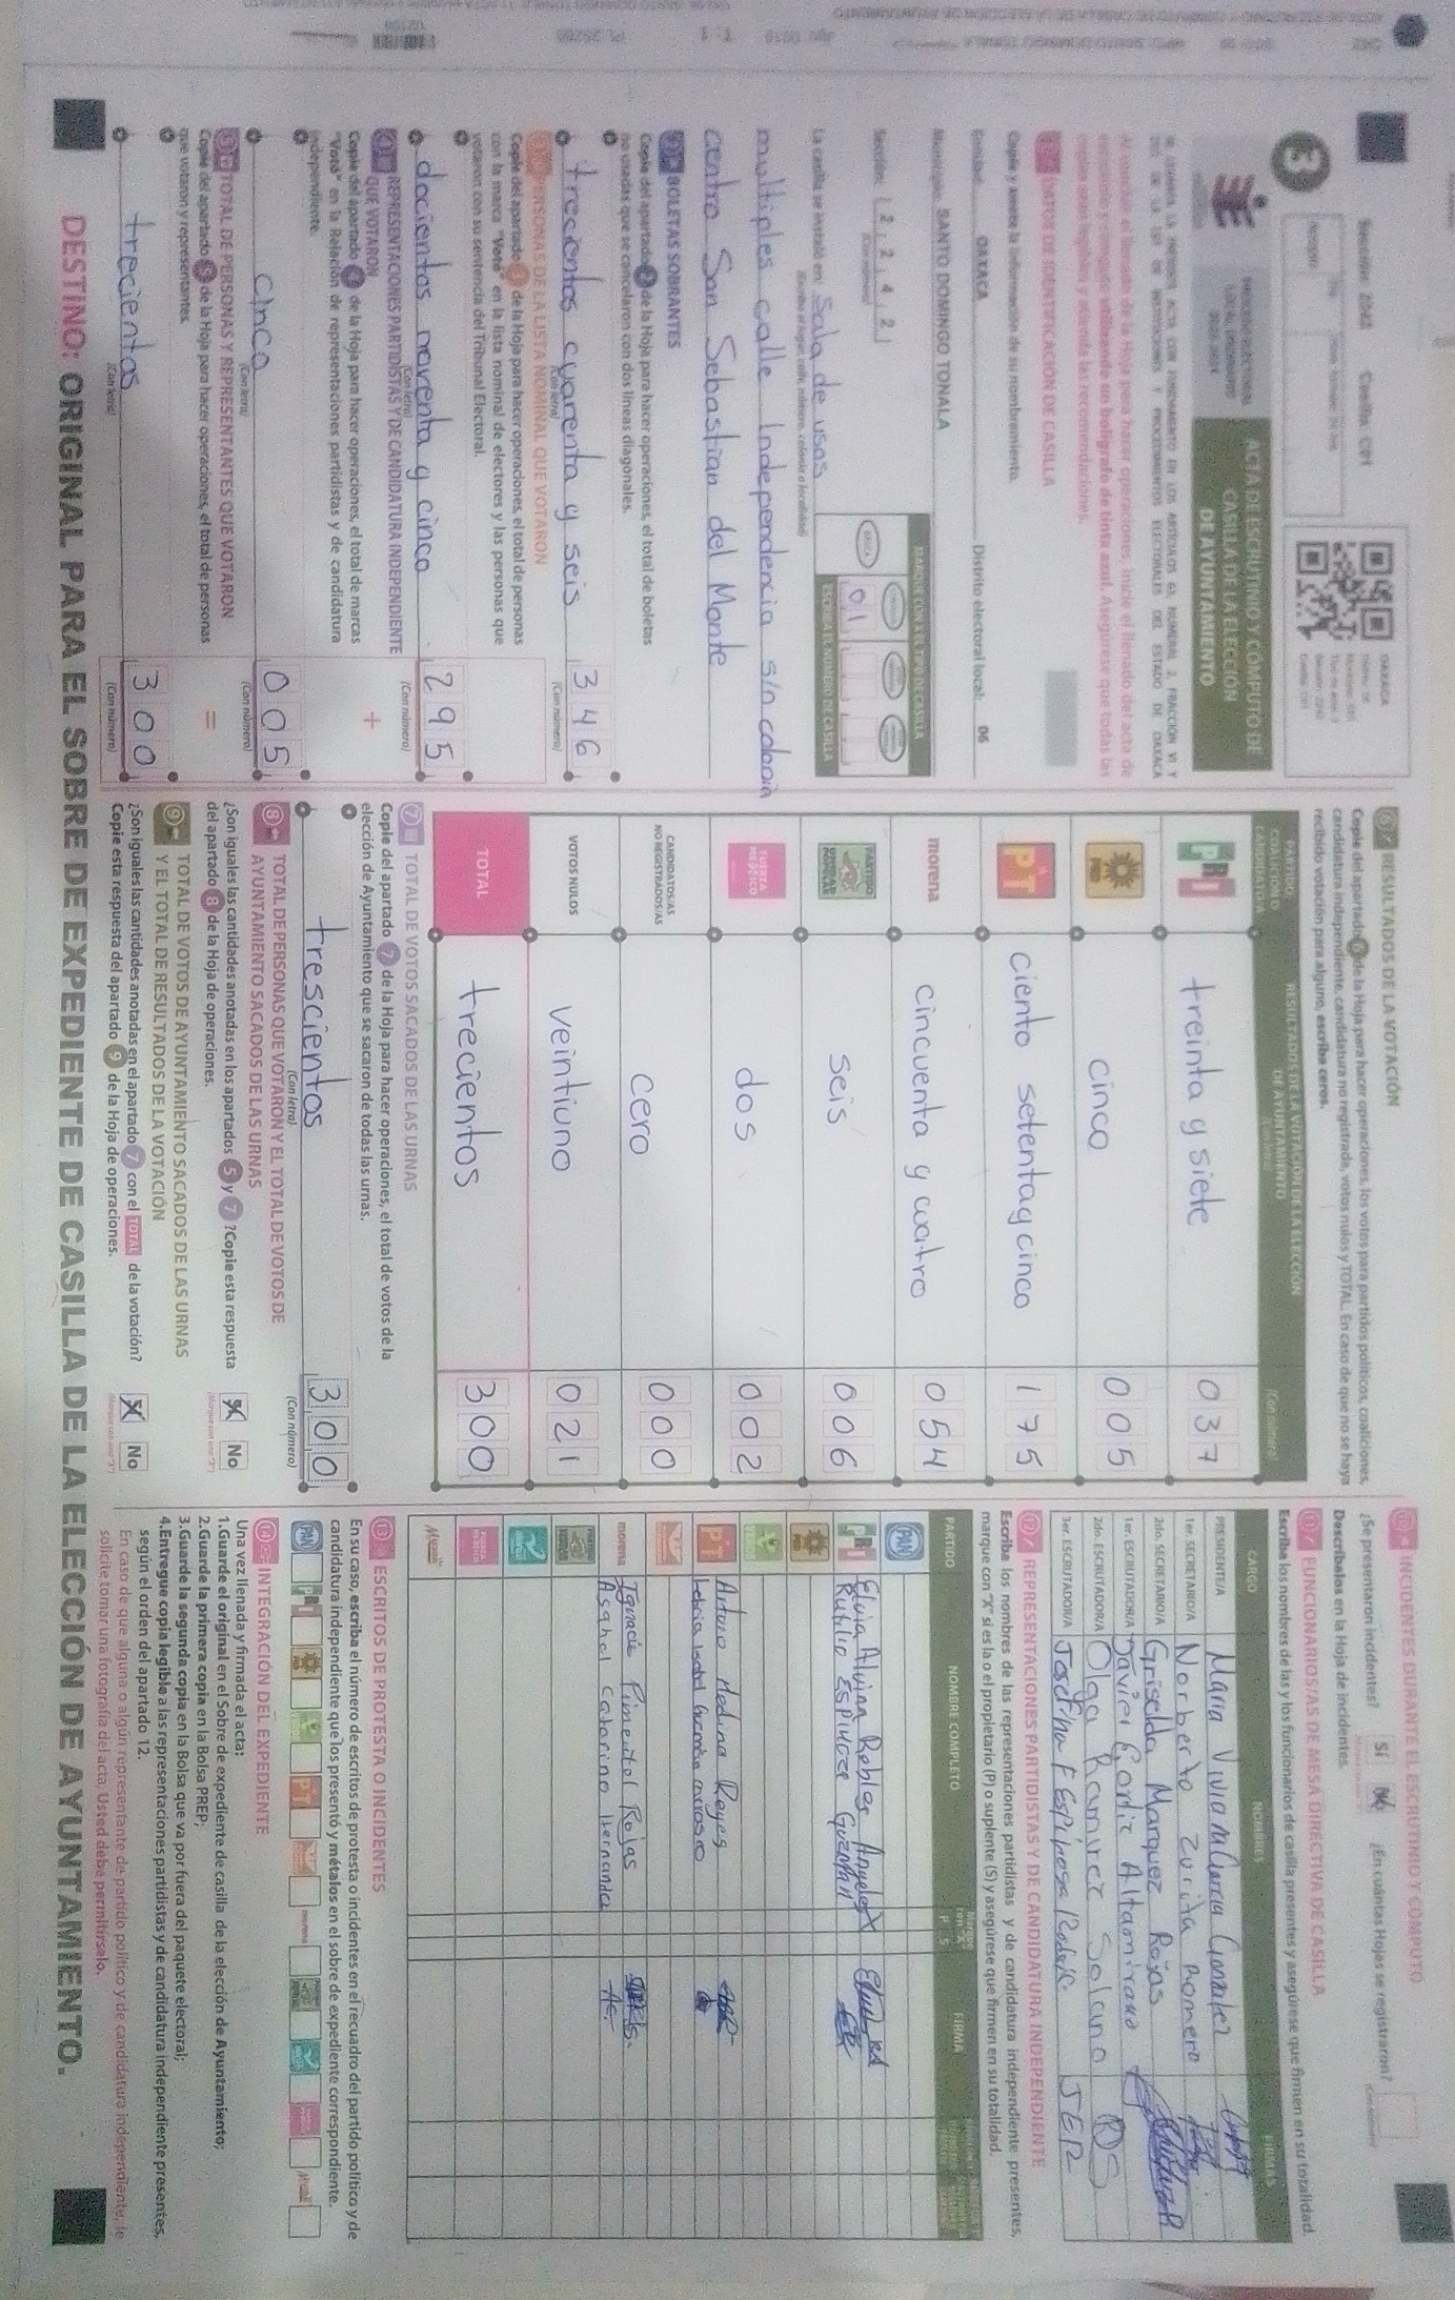 3
PROCESO ELECTORAL
LOCAL ORDINARIO
2023-2024
ACTA DE ESCRUTINIO Y CÓMPUTO DE
CASILLA DE LA ELECCIÓN
DE AYUNTAMIENTO
OAXACA
1 DATOS DE IDENTIFICACIÓN DE CASILLA
Copie y anote la información de su nombramiento.
Entidad: OAXACA Distrito electoral local: 06
Municipio: SANTO DOMINGO TONALA
Sección: 2 2 4 2
(Con número)
MARQUE CON X EL TIPO DE CASILLA
01
ESCRIBA EL NÚMERO DE CASILLA
La casilla se instaló en: Sala de usos
multiples calle Independencia sin colonia
centro San Sebastian del Monte
2 BOLETAS SOBRANTES
Copie del apartado 2 de la Hoja para hacer operaciones, el total de boletas
no usadas que se cancelaron con dos líneas diagonales.
trecientos cuarenta y seis 346
(Con letra) (Con número)
3 PERSONAS DE LA LISTA NOMINAL QUE VOTARON
Copie del apartado 3 de la Hoja para hacer operaciones, el total de personas
con la marca "Votó" en la lista nominal de electores y las personas que
votaron con su sentencia del Tribunal Electoral.
docientos noventa y cinco 295
(Con letra) (Con número)
4 REPRESENTACIONES PARTIDISTAS Y DE CANDIDATURA INDEPENDIENTE
QUE VOTARON
+
Copie del apartado 4 de la Hoja para hacer operaciones, el total de marcas
"Votó" en la Relación de representaciones partidistas y de candidatura
independiente.
cinco 005
(Con letra) (Con número)
5 TOTAL DE PERSONAS Y REPRESENTANTES QUE VOTARON
=
Copie del apartado 5 de la Hoja para hacer operaciones, el total de personas
que votaron y representantes.
trecientos 300
(Con letra) (Con número)
6 RESULTADOS DE LA VOTACIÓN
Copie del apartado 6 de la Hoja para hacer operaciones, los votos para partidos políticos, coaliciones,
candidatura independiente, candidatura no registrada, votos nulos y TOTAL. En caso de que no se haya
recibido votación para alguno, escriba ceros.
PARTIDO, COALICIÓN O CANDIDATO/A
RESULTADOS DE LA VOTACIÓN DE LA ELECCIÓN
DE AYUNTAMIENTO
(Con número)
PRI treinta y siete 037
PRD cinco 005
PT ciento setenta y cinco 175
morena cincuenta y cuatro 054
PARTIDO UNIDAD POPULAR seis 006
FUERZA MÉXICO dos 002
CANDIDATOS/AS NO REGISTRADOS/AS cero 000
VOTOS NULOS veintiuno 021
TOTAL trecientos 300
7 TOTAL DE VOTOS SACADOS DE LAS URNAS
Copie del apartado 7 de la Hoja para hacer operaciones, el total de votos de la
elección de Ayuntamiento que se sacaron de todas las urnas.
trescientos 300
(Con letra) (Con número)
8 TOTAL DE PERSONAS QUE VOTARON Y EL TOTAL DE VOTOS DE
AYUNTAMIENTO SACADOS DE LAS URNAS
¿Son iguales las cantidades anotadas en los apartados 5 y 7 ? Copie esta respuesta
del apartado 8 de la Hoja de operaciones.
X No
9 TOTAL DE VOTOS DE AYUNTAMIENTO SACADOS DE LAS URNAS
Y EL TOTAL DE RESULTADOS DE LA VOTACIÓN
¿Son iguales las cantidades anotadas en el apartado 7 con el TOTAL de la votación?
Copie esta respuesta del apartado 9 de la Hoja de operaciones.
X No
10 INCIDENTES DURANTE EL ESCRUTINIO Y CÓMPUTO
¿Se presentaron incidentes? Sí ¿En cuántas Hojas se registraron?
Descríbalos en la Hoja de incidentes.
11 FUNCIONARIOS/AS DE MESA DIRECTIVA DE CASILLA
Escriba los nombres de las y los funcionarios de casilla presentes y asegúrese que firmen en su totalidad.
CARGO NOMBRES FIRMAS
PRESIDENTE/A Maria Vivian Garcia Gonzalez
1er. SECRETARIO/A Norberto Zurita Romero
2do. SECRETARIO/A Griselda Marquez Rojas
1er. ESCRUTADOR/A Javier Cortiz Altamirano
2do. ESCRUTADOR/A Olga Ramirez Solano
3er. ESCRUTADOR/A Josefina F Espinosa JER
12 REPRESENTACIONES PARTIDISTAS Y DE CANDIDATURA INDEPENDIENTE
Escriba los nombres de las representaciones partidistas y de candidatura independiente presentes,
marque con "X" si es la o el propietario (P) o suplente (S) y asegúrese que firmen en su totalidad.
PARTIDO NOMBRE COMPLETO FIRMA
PAN
PRI Elvia Alvina Robles Angeles X
Rutilio Espinoza Guzman
PRD
PT Arturo Medina Reyes
morena Ignacio Pimentel Rojas
Asahel Catarino Hernandez
13 ESCRITOS DE PROTESTA O INCIDENTES
En su caso, escriba el número de escritos de protesta o incidentes en el recuadro del partido político y de
candidatura independiente que los presentó y métalos en el sobre de expediente correspondiente.
14 INTEGRACIÓN DEL EXPEDIENTE
Una vez llenada y firmada el acta:
1.Guarde el original en el Sobre de expediente de casilla de la elección de Ayuntamiento;
2.Guarde la primera copia en la Bolsa PREP;
3.Guarde la segunda copia en la Bolsa que va por fuera del paquete electoral;
4.Entregue copia legible a las representaciones partidistas y de candidatura independiente presentes,
según el orden del apartado 12.
En caso de que alguna o algún representante de partido político y de candidatura independiente, le
solicite tomar una fotografía del acta, Usted debe permitírselo.
DESTINO: ORIGINAL PARA EL SOBRE DE EXPEDIENTE DE CASILLA DE LA ELECCIÓN DE AYUNTAMIENTO.